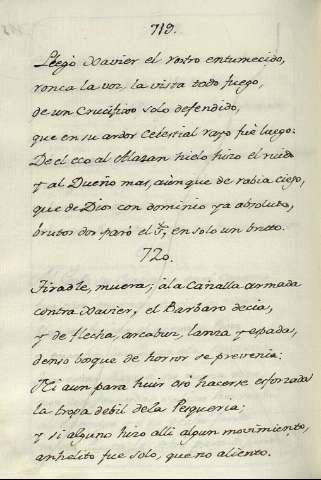 719.
Llegó Xavier el rostro entumecido,
ronca la voz, la vista todo fuego,
de un Crucifixo solo defendido,
que en su ardor Celestial rayo fuè luego:
De el eco al Alazan hielo hizo el ruido
y al Dueño mas, aùnque de rabia ciego,
que de Dios con dominio ya absoluto,
brutos dos parò el en solo un bruto.
720.
Tiradle, muera; à la Canalla armada
contra Xavier, el Barbaro decia,
y de flecha, arcabuz, lanza y espada,
denso bosque de horror se prevenia:
Ni aun para huir osò hacerse esforzada
la tropa debil de la Pesqueria;
y si alguno hizo alli algun movimiento,
anhelito fue solo, que no aliento.